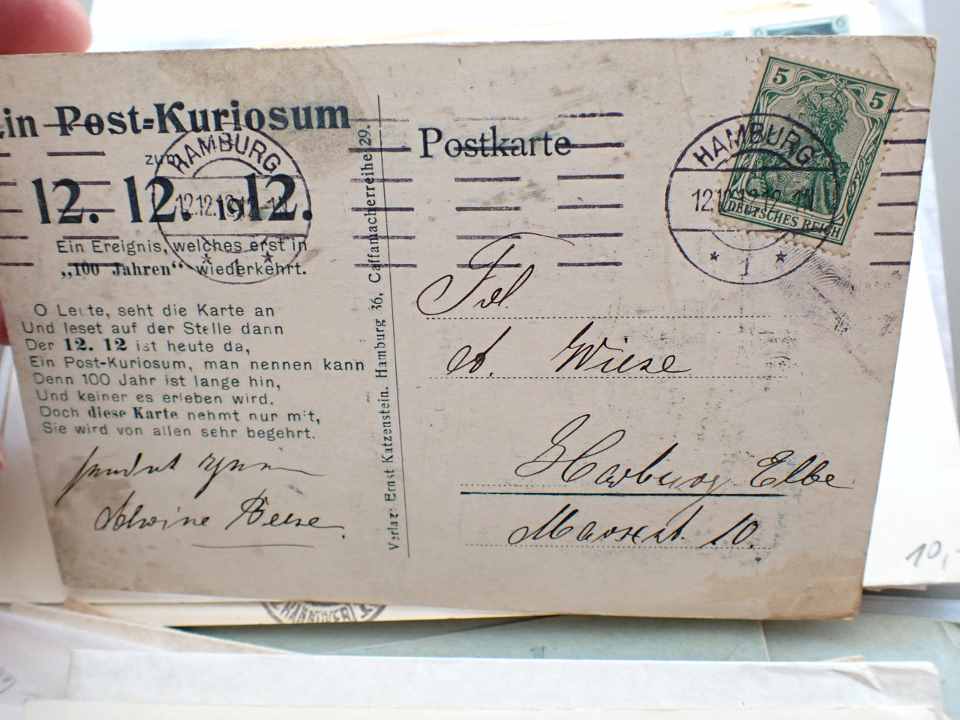 Ein Post-Kuriosum
zum
12. 12. 1912.
Ein Ereignis, welches erst in
„100 Jahren“ wiederkehrt.
O Leute, seht die Karte an
Und leset auf der Stelle dann
Der 12. 12 ist heute da,
Ein Post-Kuriosum, man nennen kann
Denn 100 Jahr ist lange hin,
Und keiner es erleben wird.
Doch diese Karte nehmt nur mit,
Sie wird von allen sehr begehrt.
sendet Ihnen
Alwine Beese.
Verlag: Ernst Katzenstein, Hamburg 36, Caffamacherreihe 29.
HAMBURG
12.12.12
* 1 *
Postkarte
HAMBURG
* 1 *
5 5
DEUTSCHES REICH
Frl.
A. Wiese
Harburg Elbe
10.
HANNOVER
1
10,-